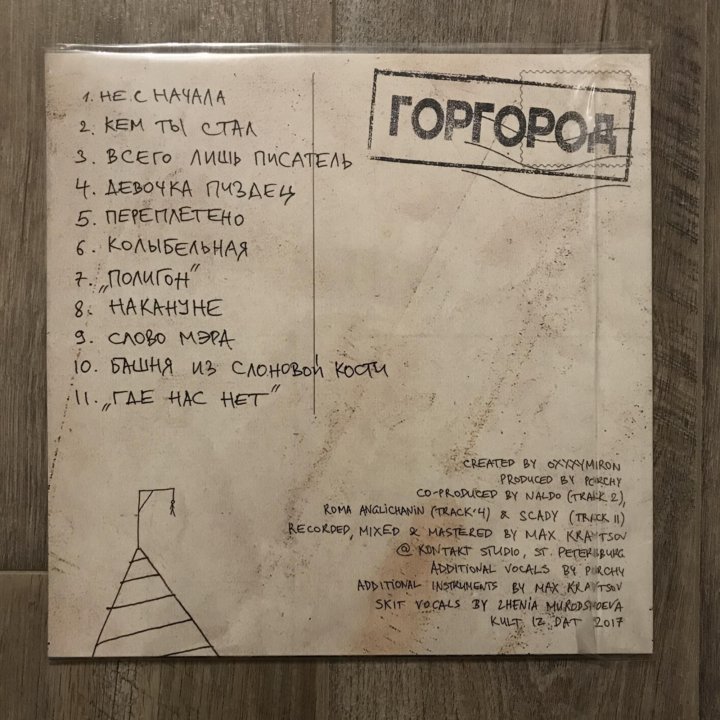 1. НЕ С НАЧАЛА
2. КЕМ ТЫ СТАЛ
3. ВСЕГО ЛИШЬ ПИСАТЕЛЬ
4. ДЕВОЧКА ПИЗДЕЦ
5. ПЕРЕПЛЕТЕНО
6. КОЛЫБЕЛЬНАЯ
7. „ПОЛИГОН"
8. НАКАНУНЕ
9. СЛОВО МЭРА
10. БАШНЯ ИЗ СЛОНОВОЙ КОСТИ
11. „ГДЕ НАС НЕТ"
ГОРГОРОД
CREATED BY OXXXYMIRON
PRODUCED BY PORCHY
CO-PRODUCED BY NALDO (TRACK 2),
ROMA ANGLICHANIN (TRACK 4) & SCADY (TRACK 11)
RECORDED, MIXED & MASTERED BY MAX KRAVTSOV
@ KONTAKT STUDIO, ST. PETERSBURG
ADDITIONAL VOCALS BY PORCHY
ADDITIONAL INSTRUMENTS BY MAX KRAVTSOV
SKIT VOCALS BY ZHENIA MURODSHOEVA
KULT IZ DAT 2017